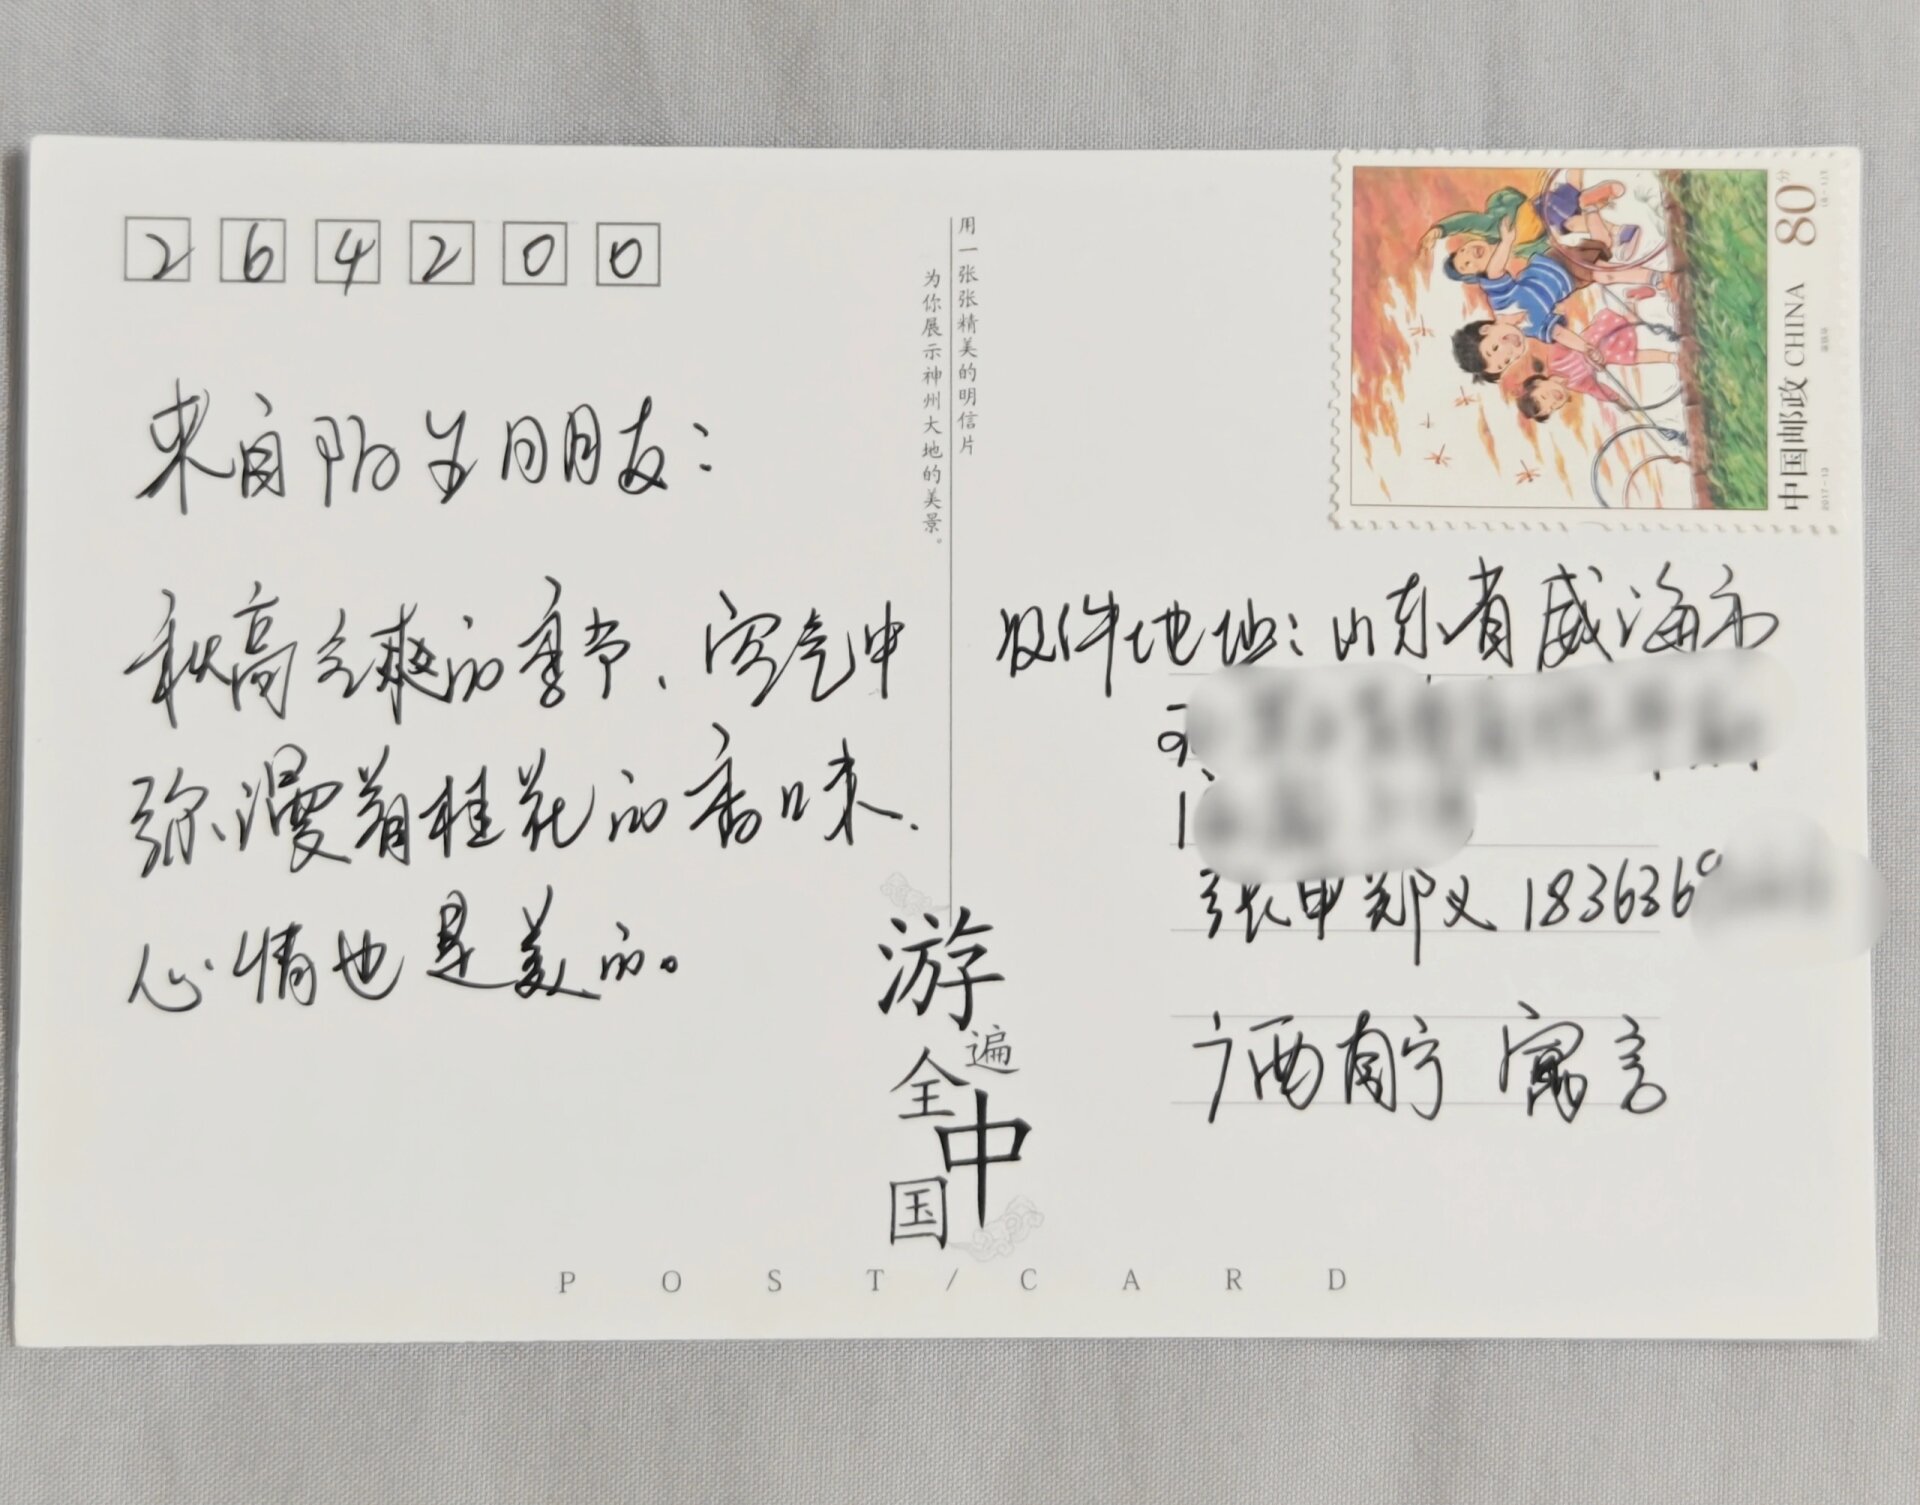 264200
来自陌生日朋友：
秋高气爽的季节、空气中
弥漫着桂花的香味、
心情也是美的。
用一张张精美的明信片
为你展示神州大地的美景。
游遍全中国
80分
中国邮政 CHINA
2017-13
收件地址：山东省威海市
张申郑义 183636
广西南宁 寓言
POST/CARD